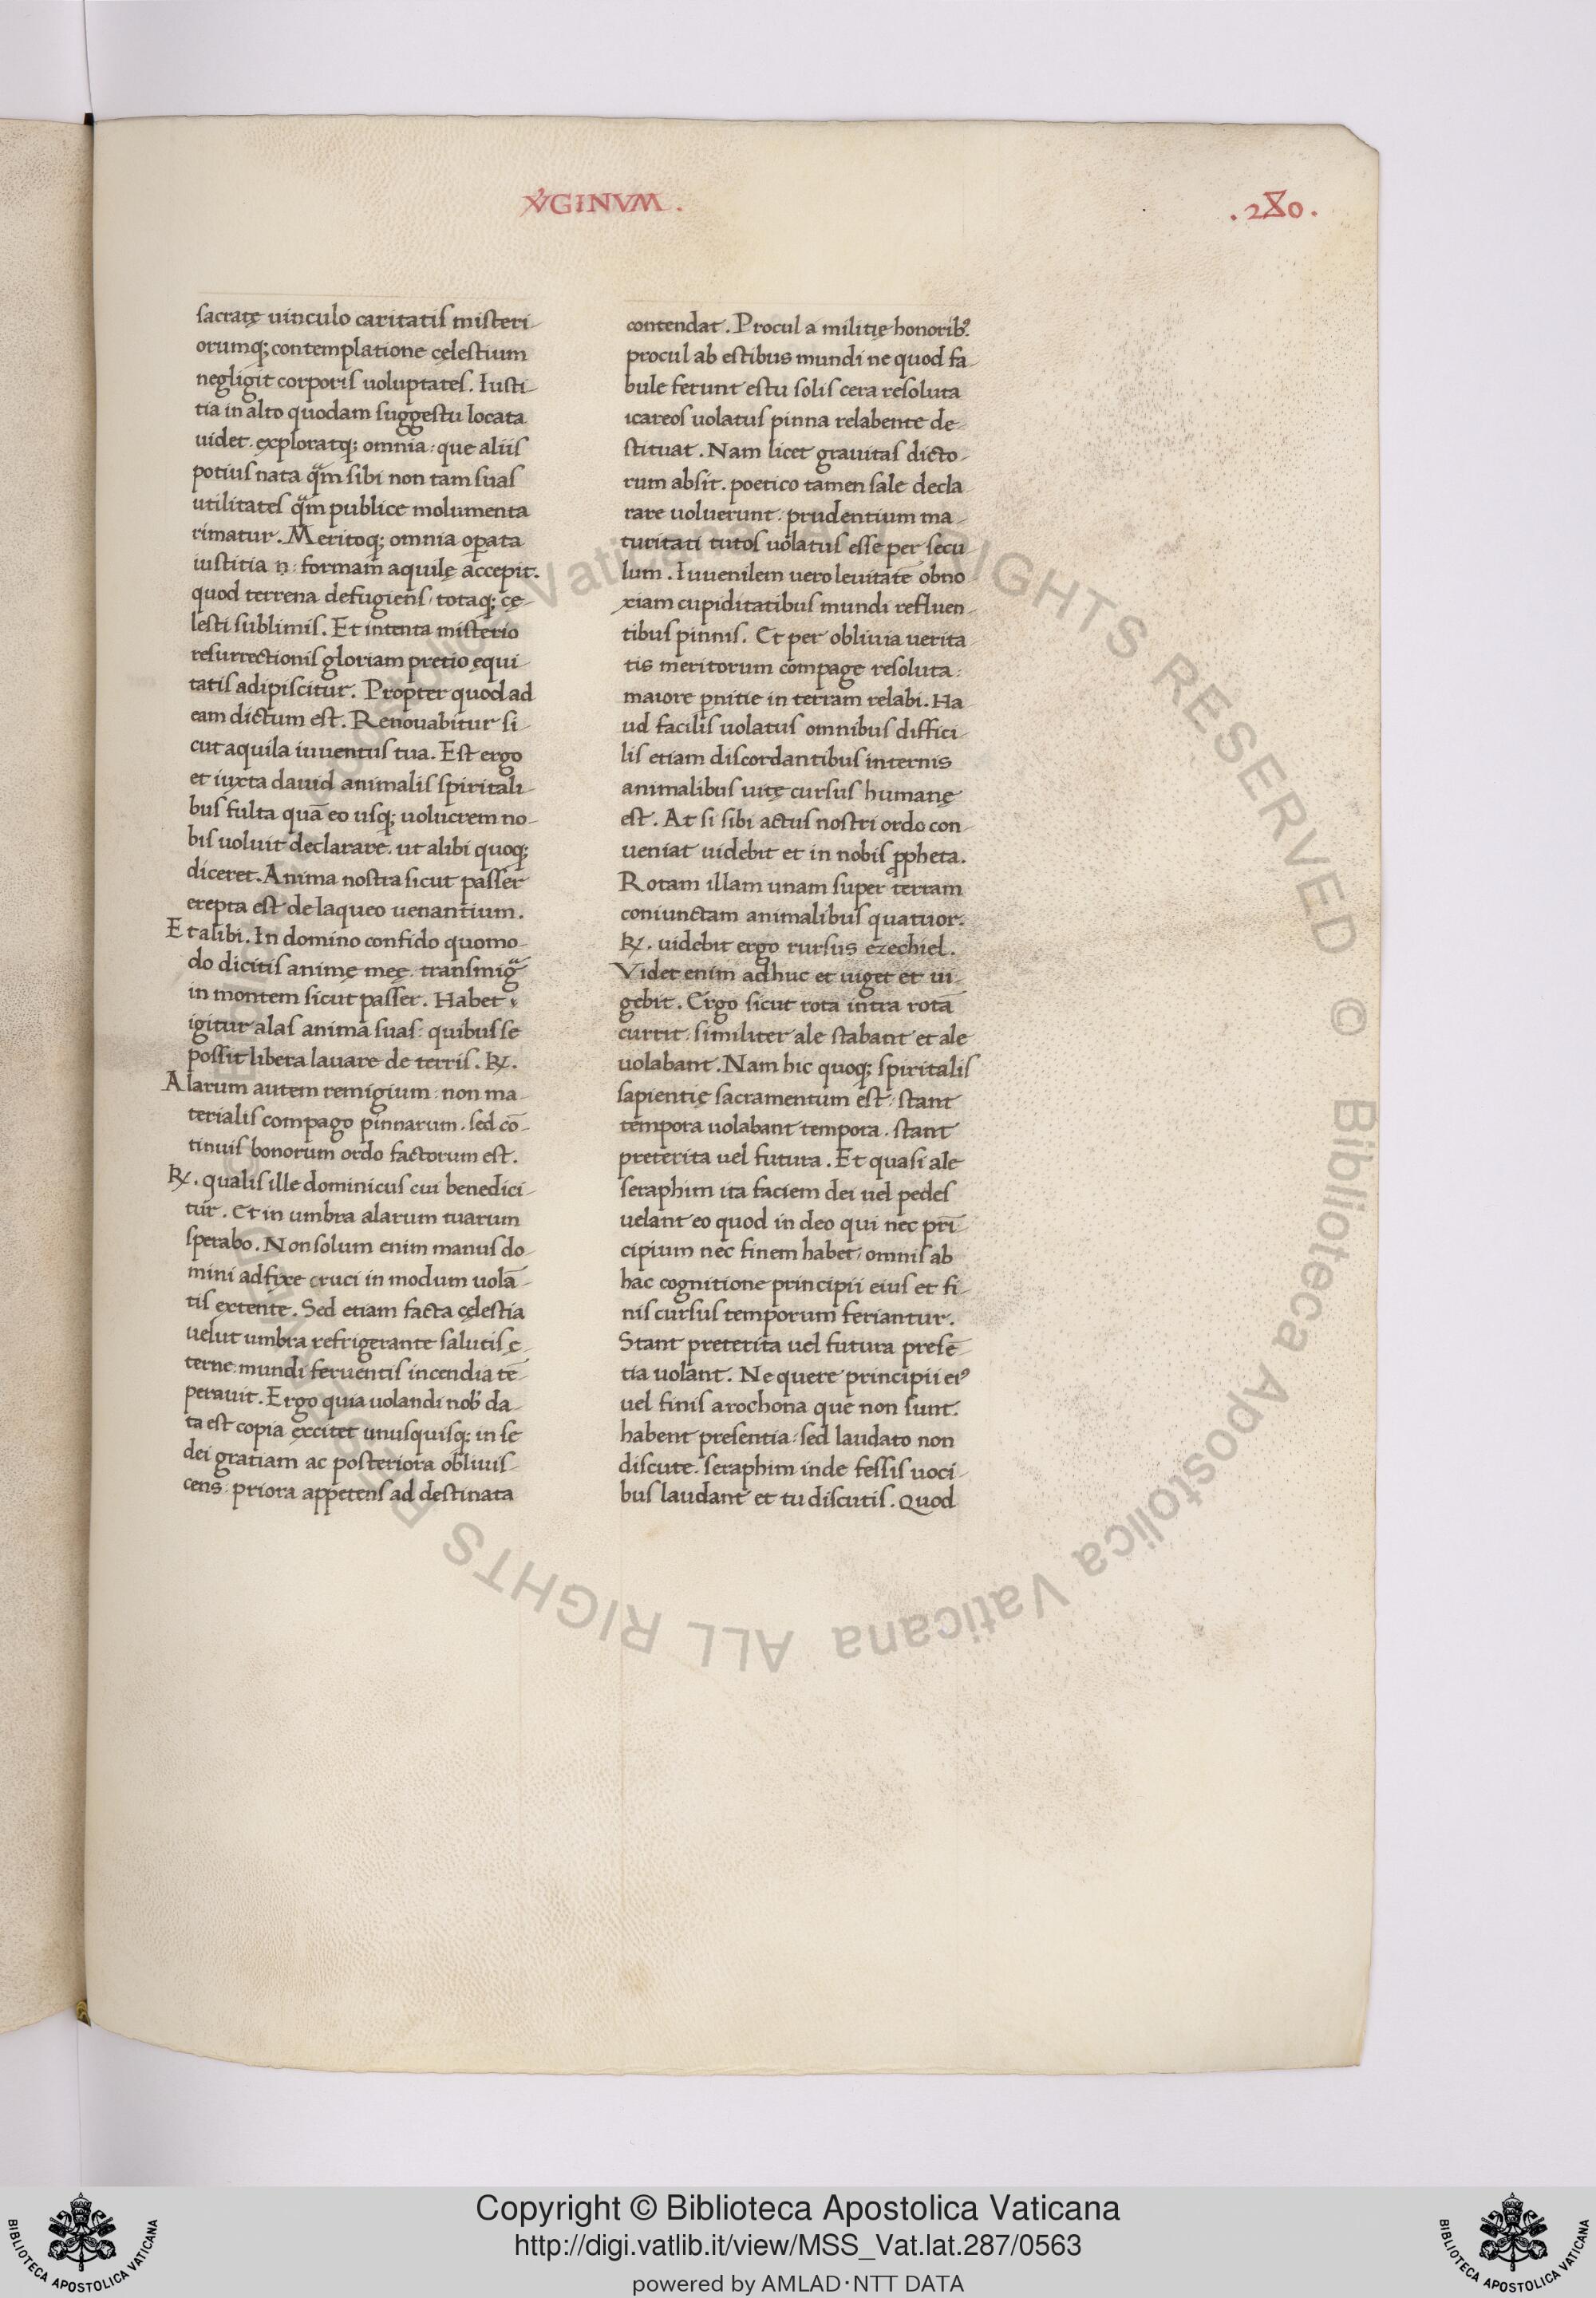 VGINVM.
.280.
sacratę uinculo caritatis misteri-
orumq; contemplatione cęlestium
negligit corporis uoluptates. Iusti-
tia in alto quodam suggestu locata
uidet. exploratq; omnia: que aliis
potius nata qm sibi non tam suas
utilitates qm publice molumenta
rimatur. Meritoq; omnia opata
iustitia n: formam aquilę accepit.
quod terrena defugiens, totaq; cę-
lesti sublimis. Et intenta misterio
resurrectionis gloriam pretio ęqui-
tatis adipiscitur. Propter quod ad
eam dictum est. Renouabitur si-
cut aquila iuuentus tua. Est ergo
et iuxta dauid animalis spiritali-
bus fulta quā eo usq; uolucrem no-
bis uoluit declarare. ut alibi quoq;
diceret. Anima nostra sicut passer
erepta est de laqueo uenantium.
Et alibi. In domino confido quomo-
do dicitis animę meę. transmig
in montem sicut passer. Habet
igitur alas anima suas: quibus se
possit libera lauare de terris. R.
Alarum autem remigium: non ma-
terialis compago pinnarum. sed cō-
tinuis bonorum ordo factorum est.
R. qualis ille dominicus cui benedici-
tur. Et in umbra alarum tuarum
sperabo. Non solum enim manus do-
mini adfixe cruci in modum uolā-
tis extente. Sed etiam facta cęlestia
uelut umbra refrigerante salutis ę-
terne mundi feruentis incendia tē-
perauit. Ergo quia uolandi nob da-
ta est copia excitet unusquisq; in se
dei gratiam ac posteriora obliuis-
cens: priora appetens ad destinata
contendat. Procul a militię honorib9.
procul ab estibus mundi ne quod fa-
bule ferunt estu solis cera resoluta
icareos uolatus pinna relabente de-
stituat. Nam licet grauitas dicto-
rum absit. poetico tamen sale decla-
rare uoluerunt. prudentium ma-
turitati tutos uolatus esse per secu-
lum. Iuuenilem uero leuitate obno-
xiam cupiditatibus mundi refluen-
tibus pinnis. Et per obliuia uerita-
tis meritorum compage resoluta:
maiore pnitie in terram relabi. Ha-
ud facilis uolatus omnibus diffici-
lis etiam discordantibus internis
animalibus uitę cursus humanę
est. At si sibi actus nostri ordo con-
ueniat uidebit et in nobis ppheta.
Rotam illam unam super terram
coniunctam animalibus quatuor.
R. uidebit ergo rursus ezechiel.
Videt enim adhuc et uiget et ui-
gebit. Ergo sicut rota intra rotā
currit: similiter ale stabant et ale
uolabant. Nam hic quoq; spiritalis
sapientię sacramentum est: stant
tempora uolabant tempora. stant
preterita uel futura. Et quasi ale
seraphim ita faciem dei uel pedes
uelant eo quod in deo qui nec prī-
cipium nec finem habet, omnis ab
hac cognitione principii eius et fi-
nis cursus temporum feriantur.
Stant preterita uel futura presē-
tia uolant. Ne quere principii ei9
uel finis arochona que non sunt.
habent presentia: sed laudato non
discute. seraphim inde fessis uoci-
bus laudant et tu discutis. Quod
Biblioteca Apostolica Vaticana ALL RIGHTS RESERVED ©
Copyright © Biblioteca Apostolica Vaticana
http://digi.vatlib.it/view/MSS_Vat.lat.287/0563
powered by AMLAD·NTT DATA
BIBLIOTECA APOSTOLICA VATICANA
BIBLIOTECA APOSTOLICA VATICANA